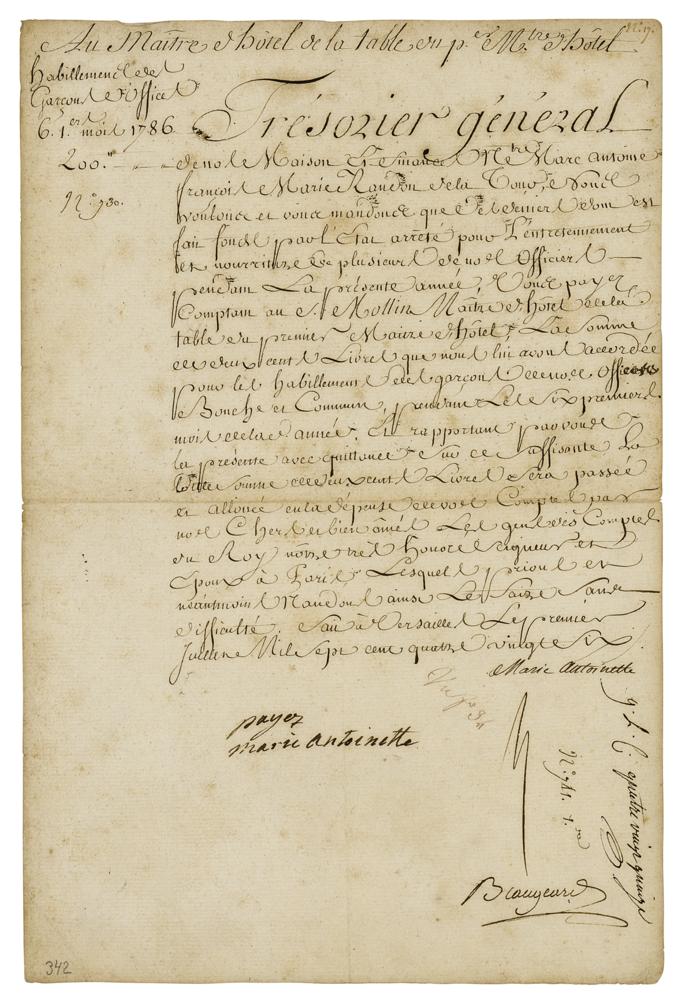 Au Maître d'hôtel de la table du p.er M.tre d'hôtel
Habillement des
Garçons d'Office
6. 1.ers mois 1786
200.
N.° 930.
Trésorier général
de notre Maison M.tre Marc antoine
françois Marie Randon de la Tour, Nous
voulons et vous mandons que des deniers dont est
fait fonds par l'Etat arrêté pour L'entretenement
et nourriture de plusieurs de nos Officiers
pendant La présente année, Vous payez
Comptant au S. Mollin Maître d'hôtel de la
table du premier Maître d'hôtel, La Somme
de deux cent Livres que nous lui avons accordée
pour les habillements des garçons de nos Offices
Bouche et Commun, pendant Les Six premiers
mois de lad. année. Et rapportant par vous
la présente avec quittance sur ce suffisante La
dite somme de deux cent Livres Sera passée
et allouée en la dépense de vos Comptes par
nos Chers et bien amés Les gens des Comptes
du Roy notre très Honoré Seigneur et
Epoux à Paris Lesquels prions et
néantmoins Mandons ainsi Le faire Sans
difficulté. Fait à Versailles Le premier
Juillet Mil Sept cent quatre vingt Six
Marie Antoinette
payez
marie antoinette
g. L. C. quatre vingt quinze
N.° 941. 1.
Beaugeard
342